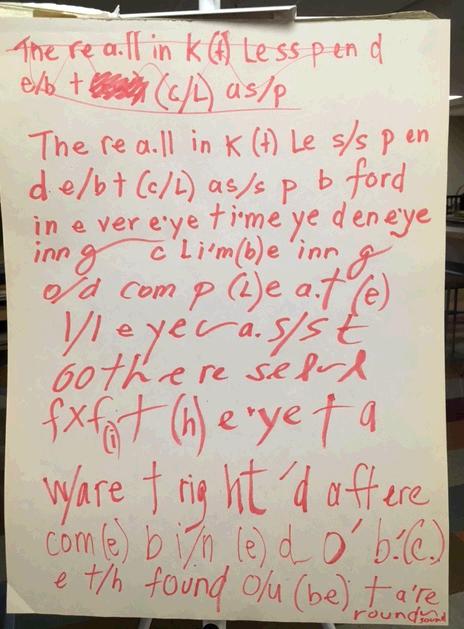 The re a.ll in K (t) Le ss p en d
e/b t (c/L) as/p
The re a.ll in K (t) Le s/s p en
d e/b t (c/L) as/s p b ford
in e ver e'ye time ye d en eye
inn g c Li'm(b)e inn g
o/d com p (L)e a.t (e)
1/1 e ye r a. s/s t
6o th e re se lf
f x f (i) t (h) e 'ye t a
w/are t rig ht 'd aft ere
com(e) b i/n (e) d o' b.'(c.)
e t/h found o/u (be) t a're
round sound